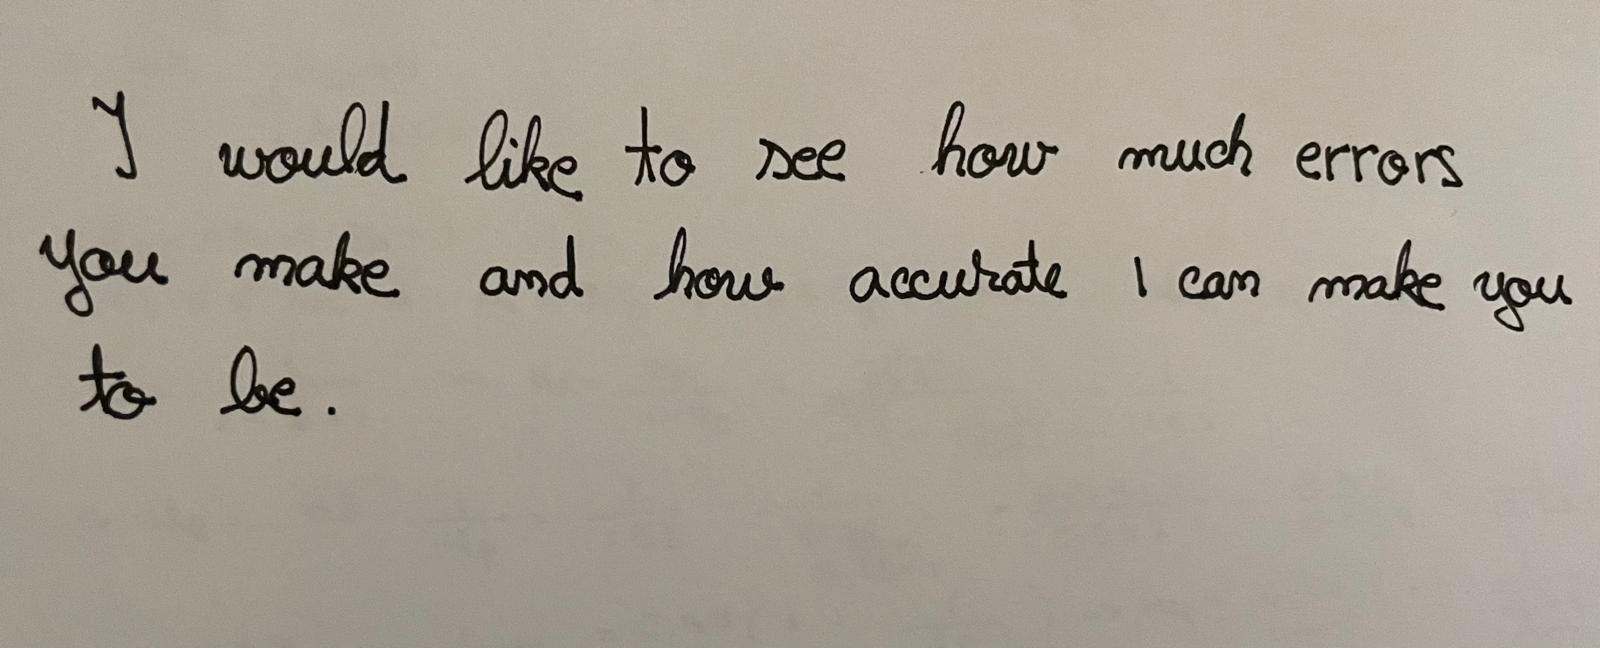 I would like to see how much errors
you make and how accurate I can make you
to be.